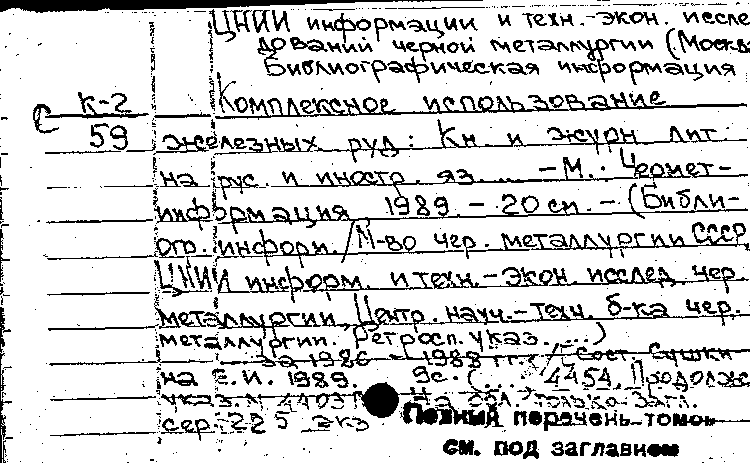 ЦНИИ информации и техн.-экон. иссле
дований черной металлургии (Москва
Библиографическая информация
С К-2 Комплексное использование
59 железных руд: Кн. и журн. лит.
на рус. и иностр. яз. ... - М.: Чермет-
информация, 1989. - 20 см. - (Библи-
огр. информ. / М-во чер. металлургии СССР,
ЦНИИ информ. и техн.-экон. исслед. чер.
металлургии, Центр. науч.-техн. б-ка чер.
металлургии. Ретросп. указ. ...)
за 1986 - 1988 гг. / Сост. Сушки-
на Е.И. 1989. 9с. (... 4454. Продолж
указ. N 4403 На обл. только загл.
сер. 225 экз
Полный перечень томов
см. под заглавием